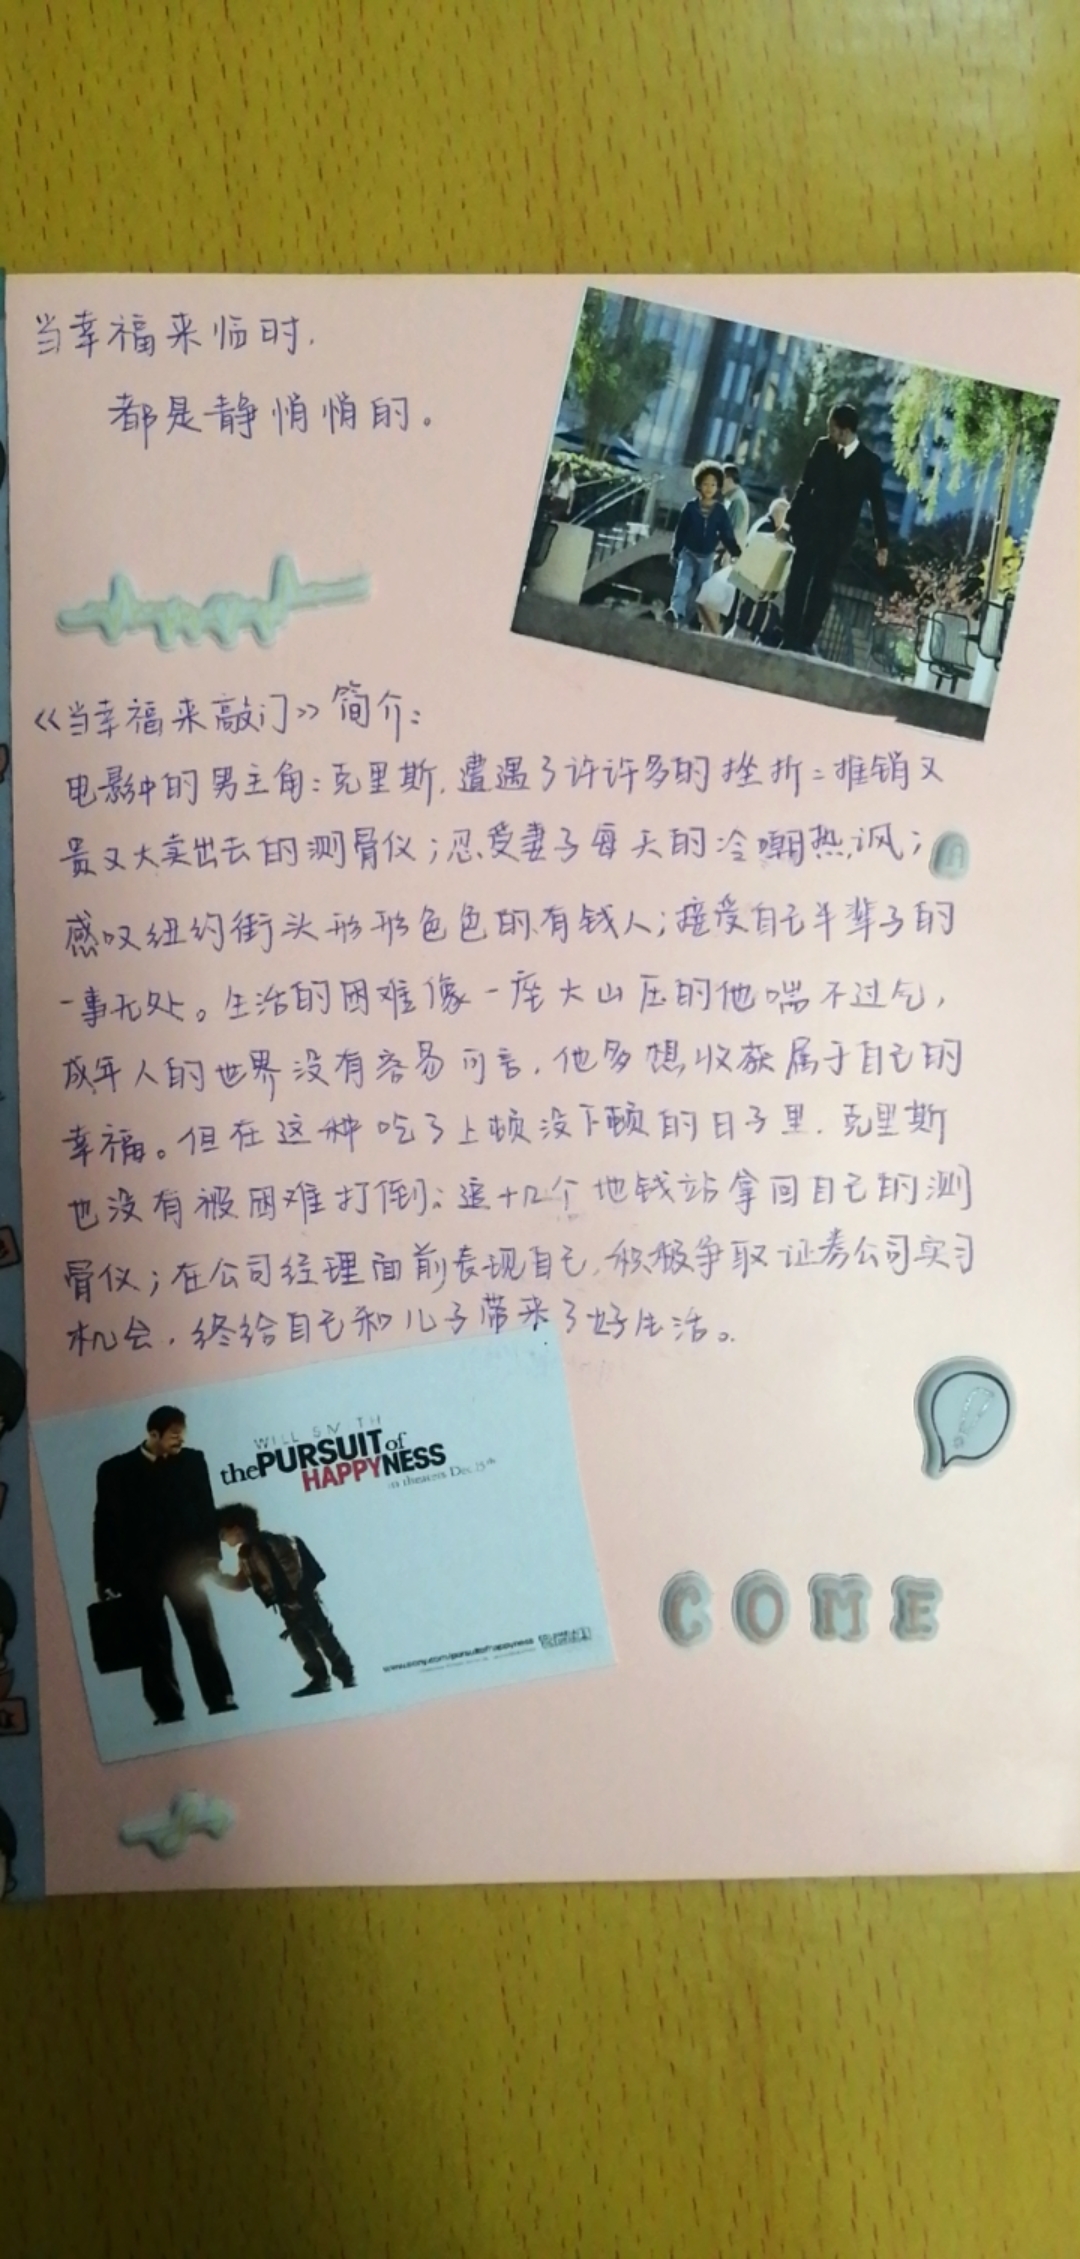 当幸福来临时,
都是静悄悄的。
《当幸福来敲门》简介:
电影中的男主角:克里斯,遭遇了许许多的挫折:推销又
贵又大卖出去的测骨仪;忍受妻子每天的冷嘲热讽;
感叹纽约街头形形色色的有钱人;接受自己半辈子的
一事无处。生活的困难像一座大山压的他喘不过气,
成年人的世界没有容易可言,他多想收获属于自己的
幸福。但在这种吃了上顿没下顿的日子里,克里斯
也没有被困难打倒:追十几个地钱站拿回自己的测
骨仪;在公司经理面前表现自己,积极争取证券公司实习
机会,终给自己和儿子带来了好生活。
WILL SMITH
the PURSUIT of
HAPPYNESS
in theaters Dec 15th
www.sony.com/pursuitofhappyness
COME